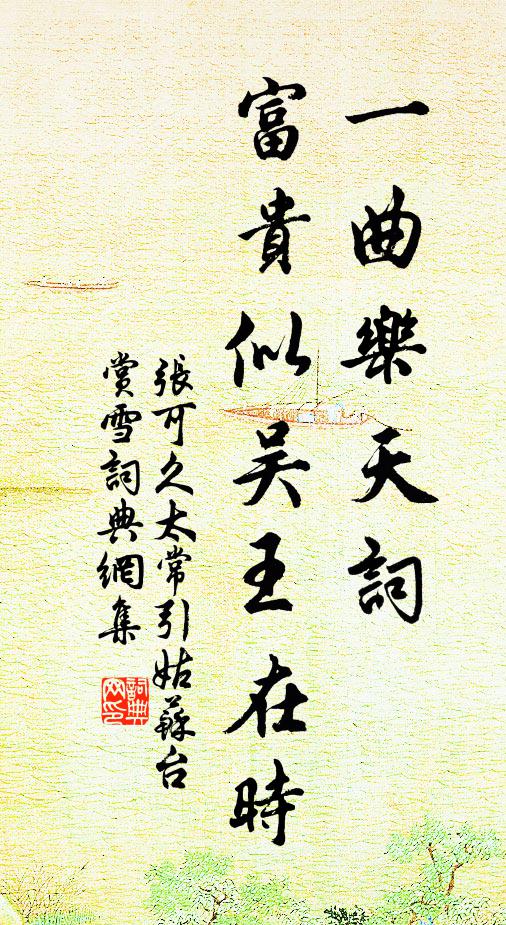 一曲樂天詞
富貴似吴王在時
張可久太常引姑蘇台
賞雪詞典網集
詞典
网印